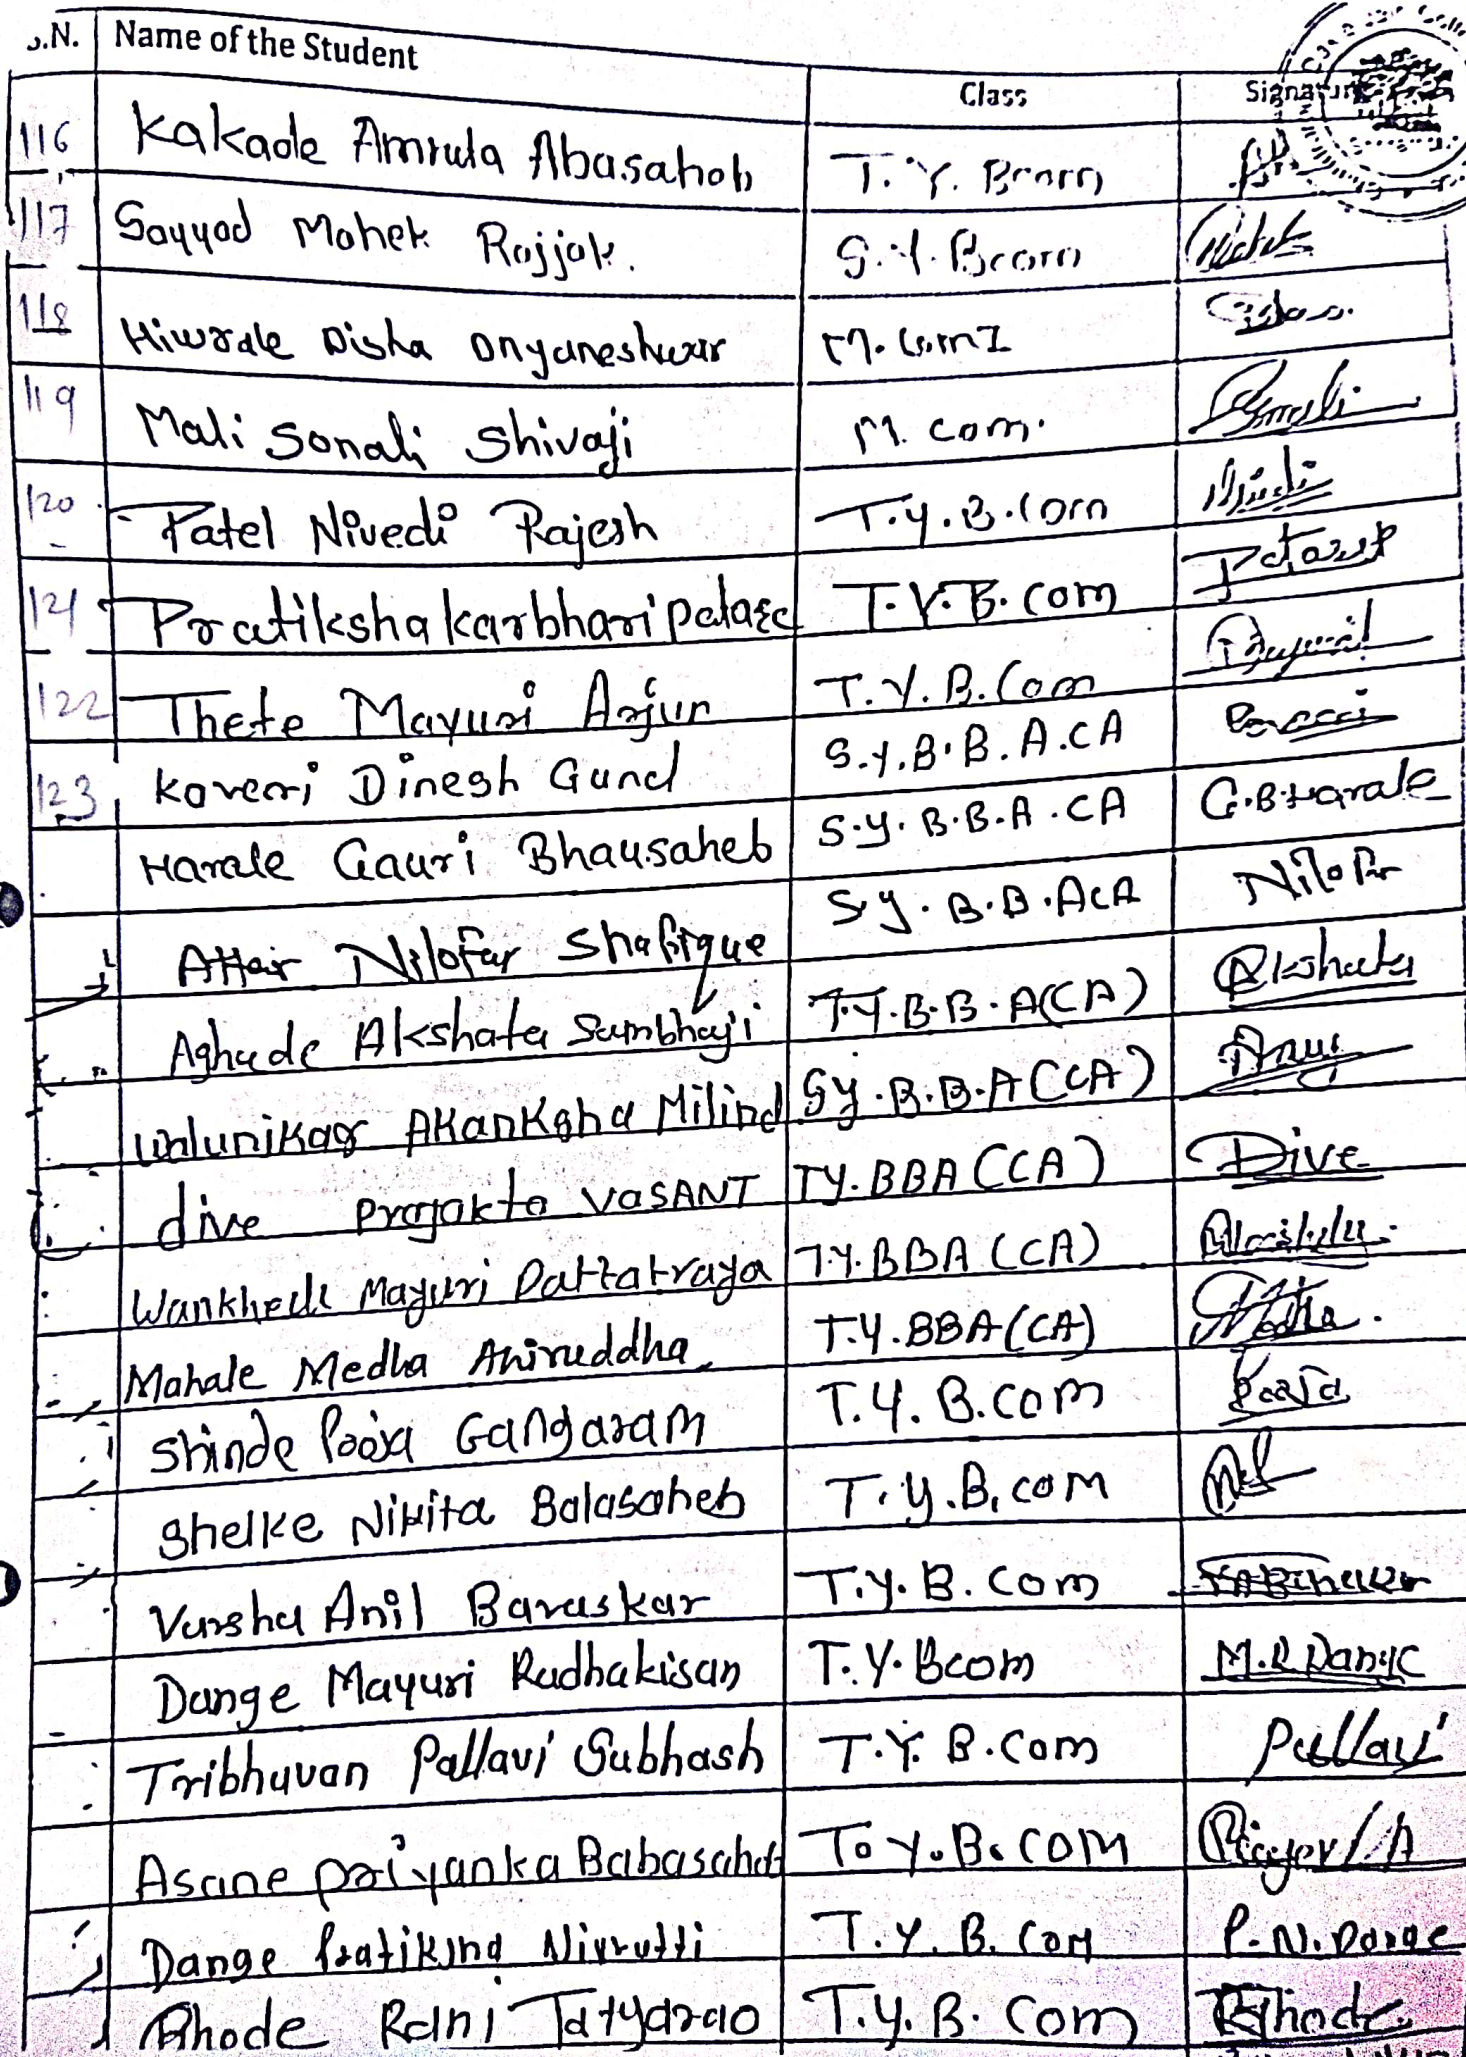 S.N. Name of the Student Class Signature
116 Kakade Amruta Abasaheb T.Y. Bcom
117 Sayyad Mahek Rajjak. S.Y. Bcom
118 Hiwrale Disha Dnyaneshwar M.Com I
119 Mali Sonali Shivaji M. com. Sonali
120 Patel Nivedi Rajesh T.Y.B.Com
121 Pratiksha karbhari T.Y.B.com
122 Thete Mayuri Arjun T.Y.B.Com
123 Kaveri Dinesh Gund S.Y.B.B.A.CA
Harale Gauri Bhausaheb S.Y.B.B.A.CA G.B.Harale
Attar Nilofar Shafique S.Y.B.B.A CA Nilofar
Aghade Akshata Sambhaji T.Y.B.B.A(CA) Akshata
Walunjkar Akanksha Milind S.Y.B.B.A(CA)
dive Prajakta VASANT TY.BBA(CA) Dive
Wankhede Mayuri Dattatraya T.Y.BBA(CA)
Mahale Medha Aniruddha T.Y.BBA(CA) Medha.
Shinde Pooja Gangaram T.Y.B.com Pooja
Shelke Nikita Balasaheb T.Y.B.com
Varsha Anil Baraskar T.Y.B.Com
Dange Mayuri Radhakisan T.Y.Bcom M.R.Dange
Tribhuvan Pallavi Subhash T.Y.B.Com Pallavi
Asane Priyanka Babasaheb T.Y.B.COM
Dange Pratiksha Nivrutti T.Y.B.Com P.N.Dange
Rhode Rani Tatyarao T.Y.B.Com